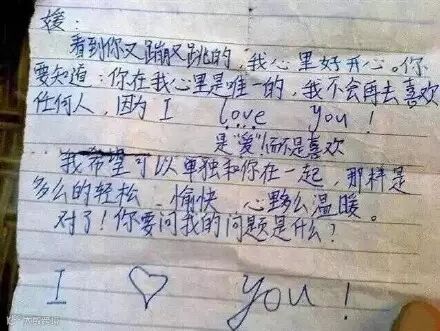 媛：
看到你又蹦又跳的，我心里好开心。你
要知道：你在我心里是唯一的，我不会再去喜欢
任何人，因为 I love you！
是“爱”而不是喜欢
我希望可以单独和你在一起，那样是
多么的轻松、愉快 心多么温暖。
对了！你要问我的问题是什么？
I ♡ you！